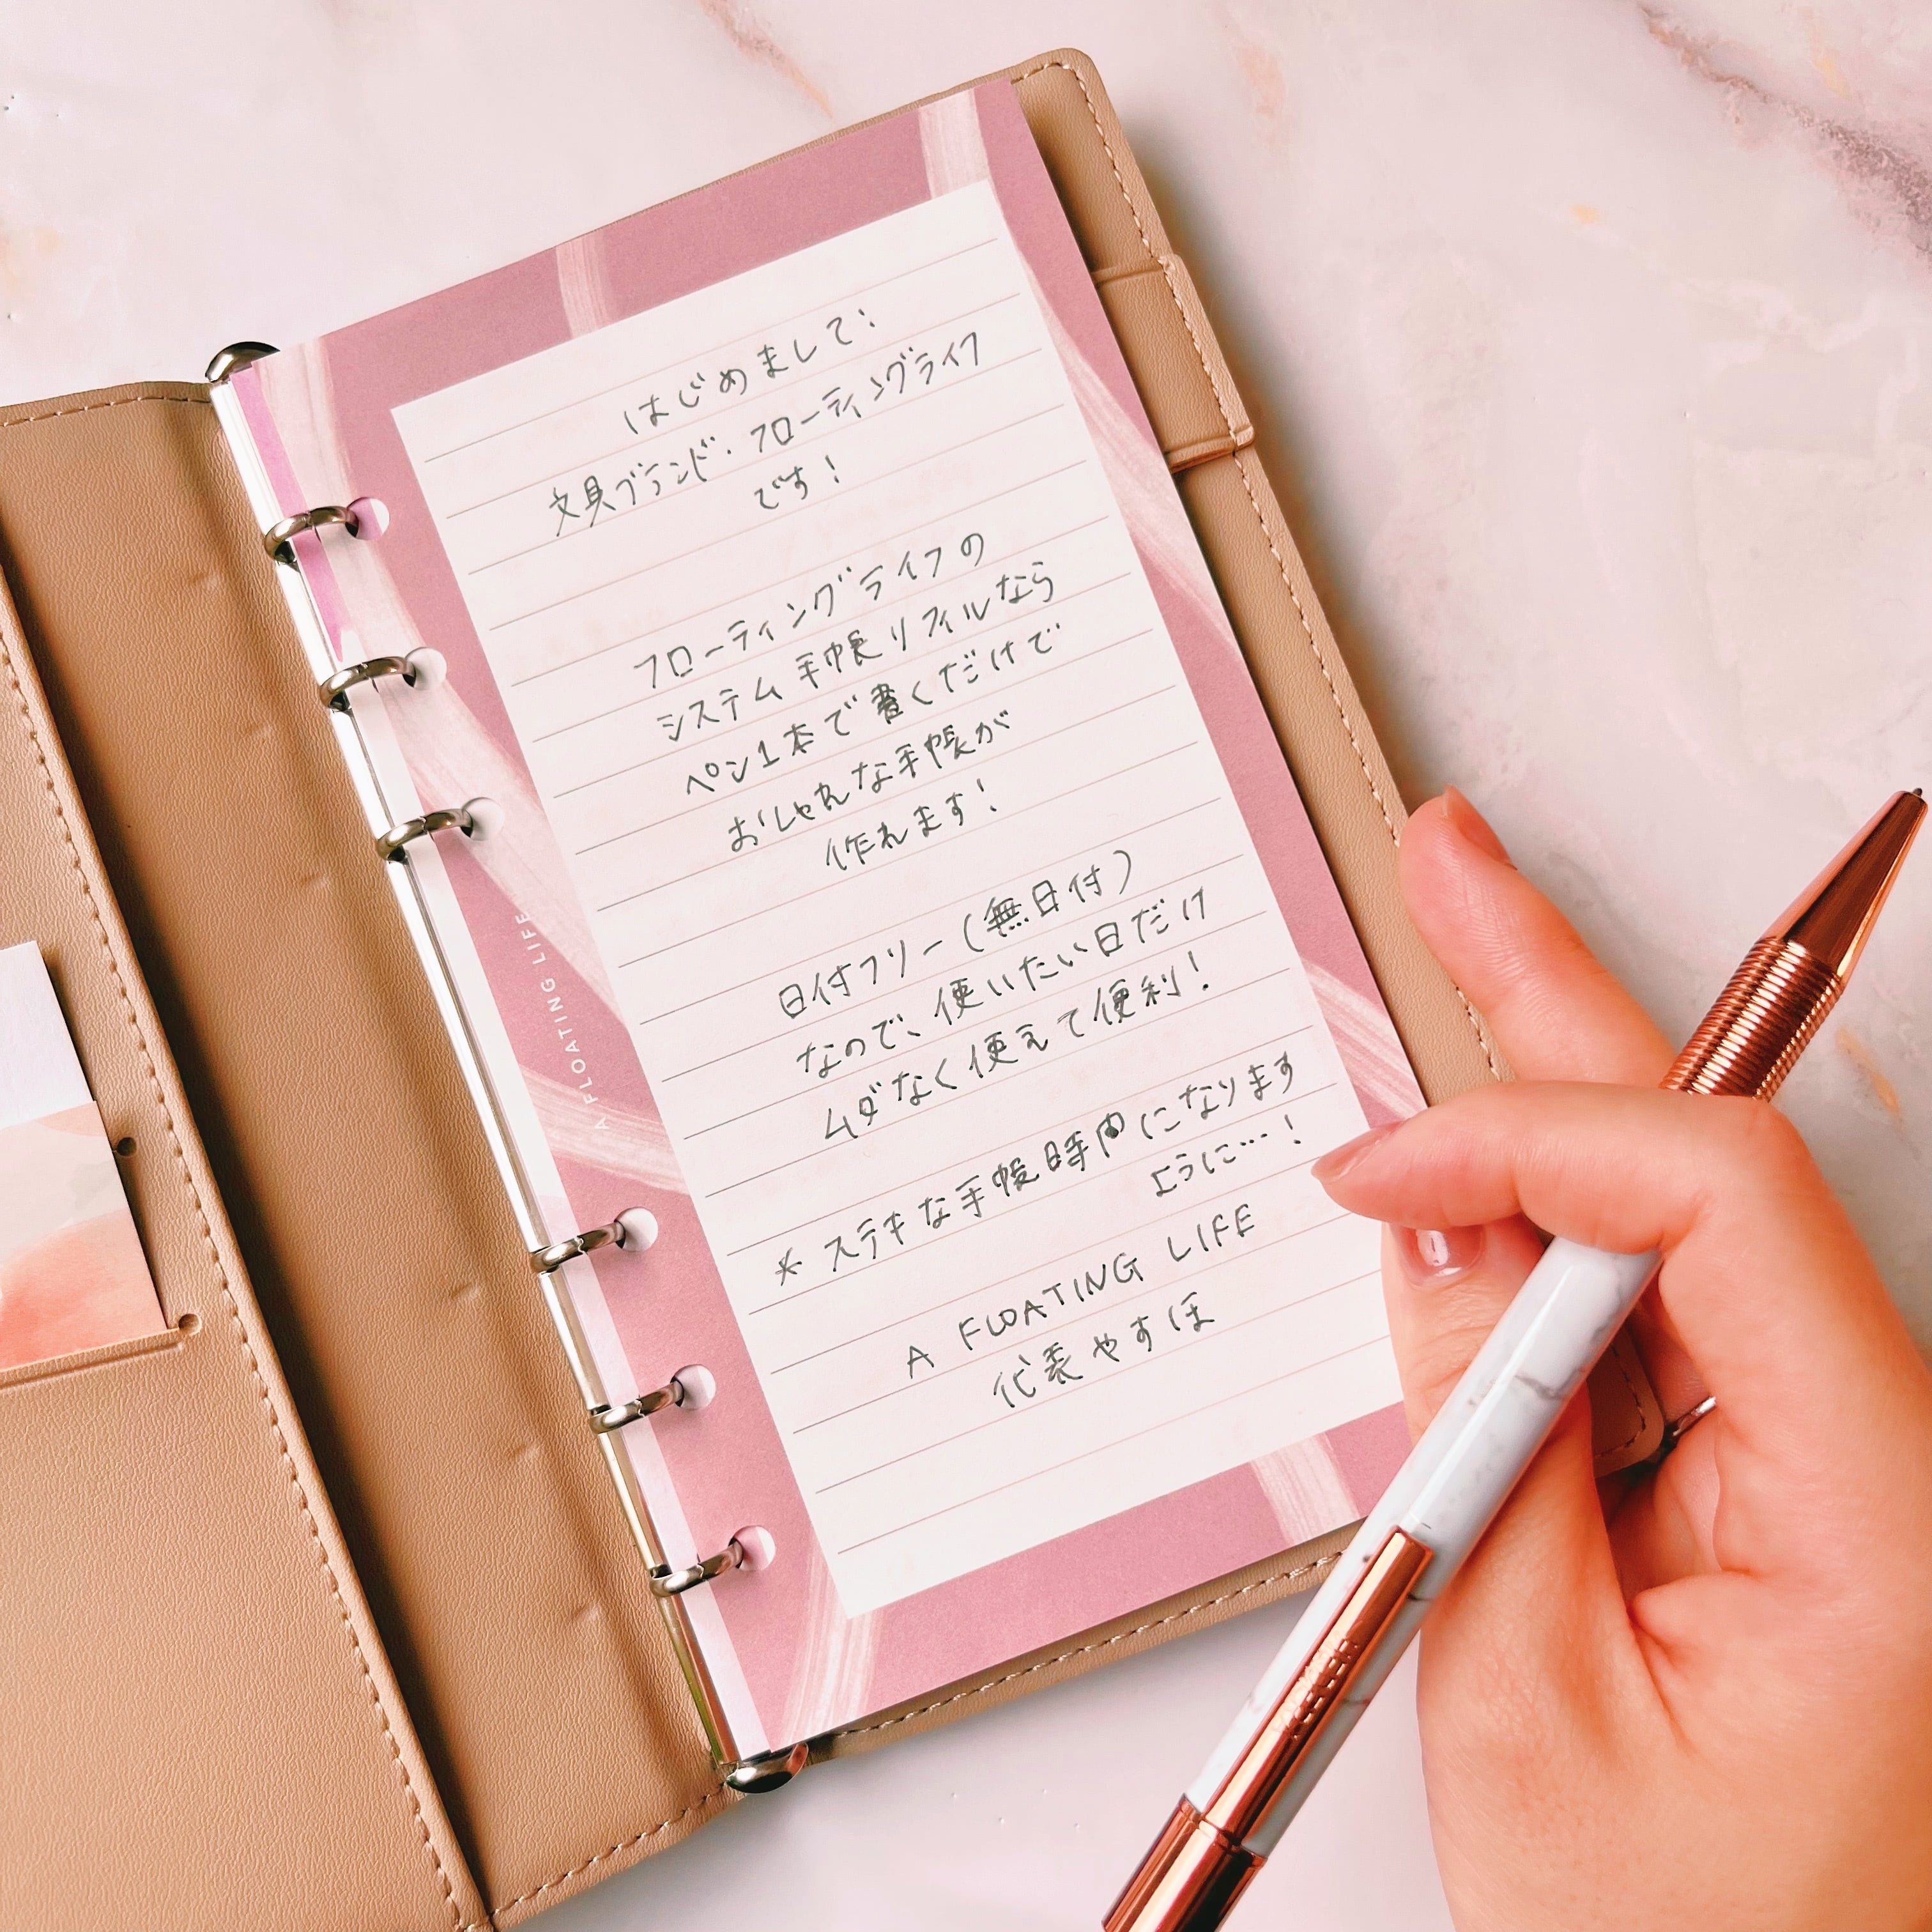 はじめまして!
文具ブランド・フローティングライフ
です!
フローティングライフの
システム手帳リフィルなら
ペン1本で書くだけで
おしゃれな手帳が
作れます!
日付フリー(無日付)
なので、使いたい日だけ
ムダなく使えて便利!
* ステキな手帳時間になります
ように…!
A FLOATING LIFE
代表やすほ
A FLOATING LIFE